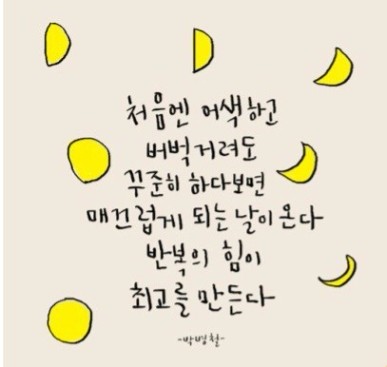 처음엔 어색하고
버벅거려도
꾸준히 하다보면
매끄럽게 되는 날이 온다
반복의 힘이
최고를 만든다
-박병철-